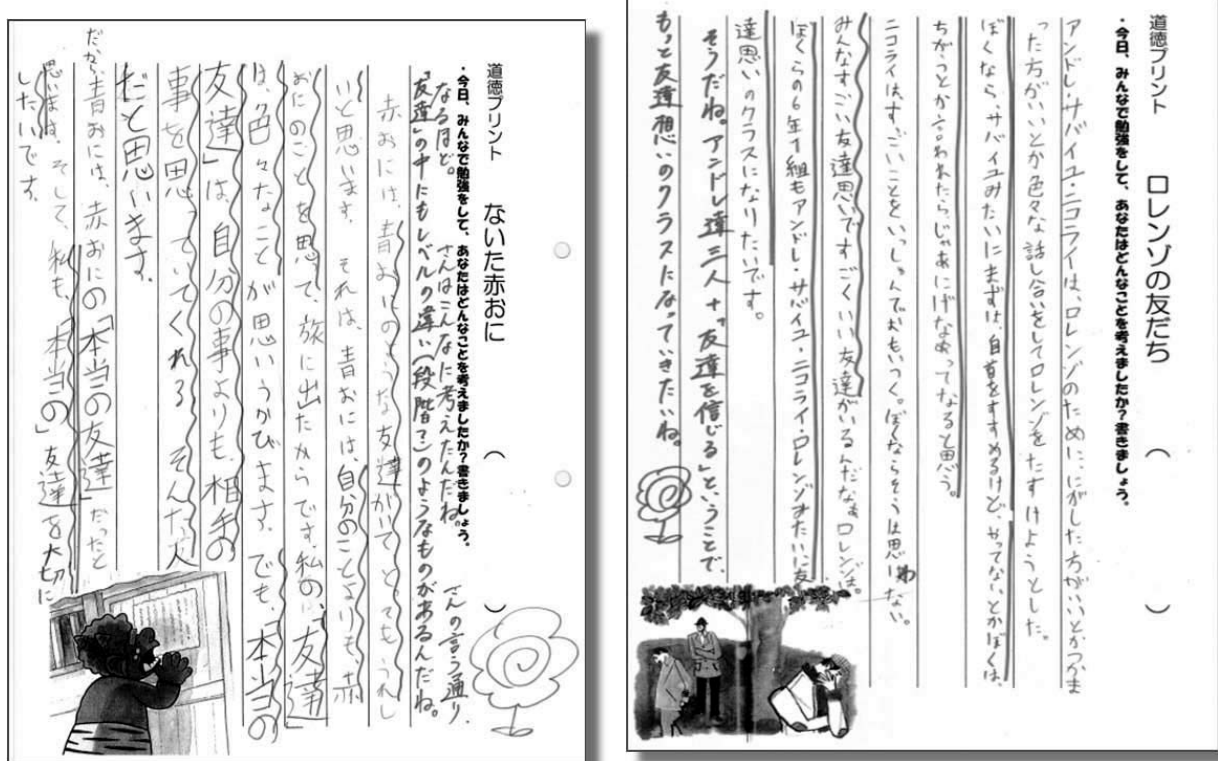 道徳プリント　ないた赤おに　（　　）
・今日、みんなで勉強をして、あなたはどんなことを考えましたか？書きましょう。
なるほど。　さんはこんなに考えたんだね。　さんの言う通り、
「友達」の中にもレベルの違い（段階？）のようなものがあるんだね。
赤おには、青おにのような友達がいてとてもうれし
いと思います。それは、青おには、自分のことよりも赤
おにのことを思って、旅に出たからです。私の、「友達」
は、色々なことが思いうかびます。でも、「本当の
友達」は、自分の事よりも、相手の
事を思っていてくれる そんな人
だと思います。
だから、青おには、赤おにの「本当の友達」だったと
そして、私も、「本当の」友達を大切に
したいです。
道徳プリント　ロレンゾの友だち　（　　）
・今日、みんなで勉強をして、あなたはどんなことを考えましたか？書きましょう。
アンドレ・サバイユ・ニコライは、ロレンゾのために、にがした方がいいとかつかま
った方がいいとか色々な話し合いをしてロレンゾをたすけようとした。
ぼくなら、サバイユみたいにまずは、自首をすすめるけど、やってないとかぼくは、
ちがうとか言われたら、じゃあにげなぁってなると思う。
ニコライは、すごいことをいっしゅんでおもいつく。ぼくならそうは思わない。
みんなすごい友達思いですごくいい友達がいるんだなぁロレンゾは。
ぼくらの6年1組もアンドレ・サバイユ・ニコライ・ロレンゾみたいに友
達思いのクラスになりたいです。
そうだね。アンドレ達三人＋“友達を信じる”ということで、
もっと友達想いのクラスになっていきたいね。